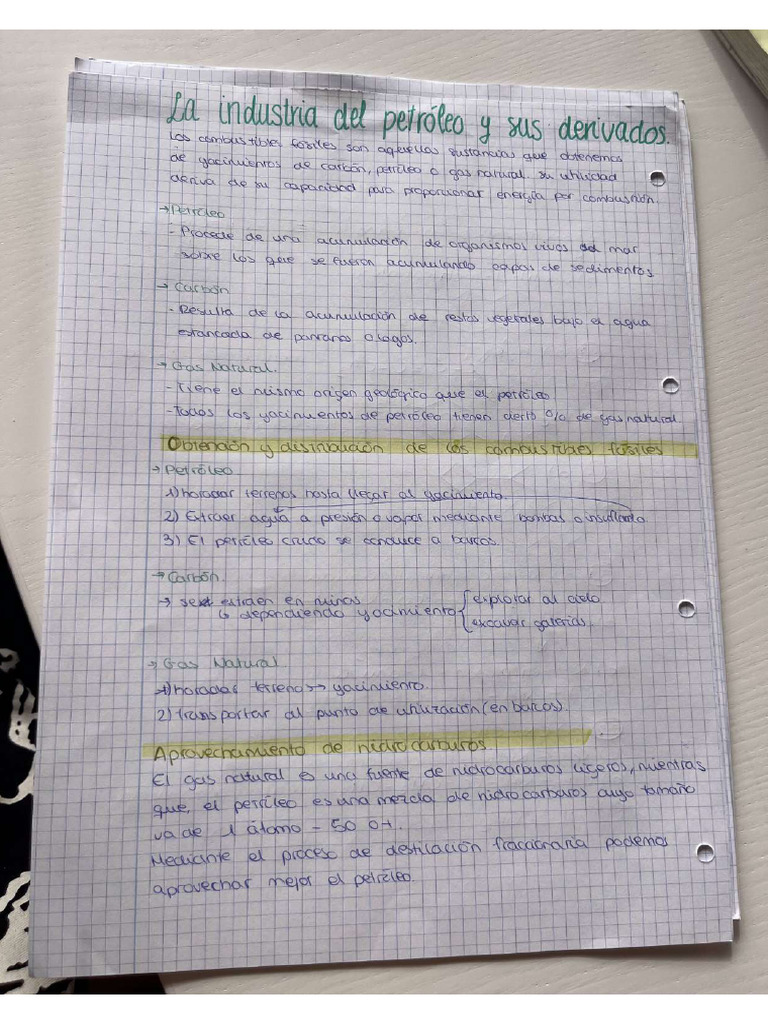 La industria del petróleo y sus derivados.
Los combustibles fósiles son aquellas sustancias que obtenemos
de yacimientos de carbón, petróleo o gas natural. Su utilidad
deriva de su capacidad para proporcionar energía por combustión.
→ Petróleo
- Procede de una acumulación de organismos vivos del mar
sobre los que se fueron acumulando capas de sedimentos
→ Carbón
- Resulta de la acumulación de restos vegetales bajo el agua
estancada de pantanos o lagos.
→ Gas Natural.
- Tiene el mismo origen geológico que el petróleo
- Todos los yacimientos de petróleo tienen cierto % de gas natural.
Obtención y distribución de los combustibles fósiles
→ Petróleo
1) horadar terrenos hasta llegar al yacimiento.
2) Extraer agua a presión o vapor mediante bombas o insuflando
3) El petróleo crudo se conduce a barcos.
→ Carbón.
→ se extraen en minas
↳ dependiendo yacimiento { explorar al cielo
{ excavar galerías.
→ Gas Natural
1) horadas terrenos → yacimiento.
2) transportar al punto de utilización (en barcos).
Aprovechamiento de hidrocarburos
El gas natural es una fuente de hidrocarburos ligeros, mientras
que, el petróleo es una mezcla de hidrocarburos cuyo tamaño
va de 1 átomo - 50 o +.
Mediante el proceso de destilación fraccionaria podemos
aprovechar mejor el petróleo.